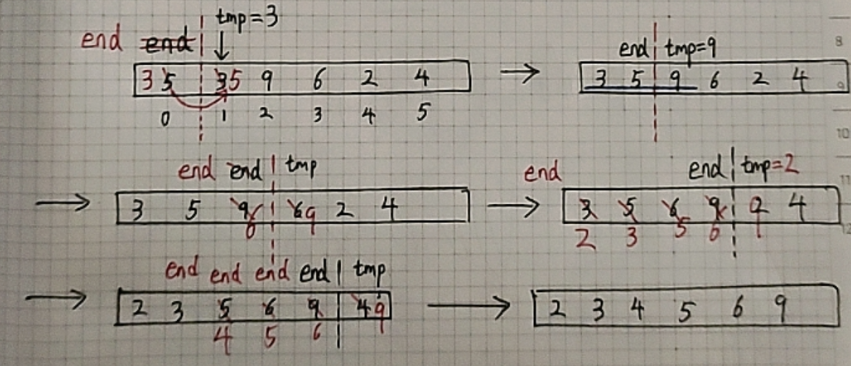 tmp=3
end end
3 5 3 5 9 6 2 4
0 1 2 3 4 5
end tmp=9
3 5 9 6 2 4
end end tmp
3 5 9 6 9 2 4
6
end end tmp=2
3 5 6 9 2 4
2 3 5 6
end end end end tmp
2 3 5 6 9 4 9
4 5 6
2 3 4 5 6 9
8
9
10
11